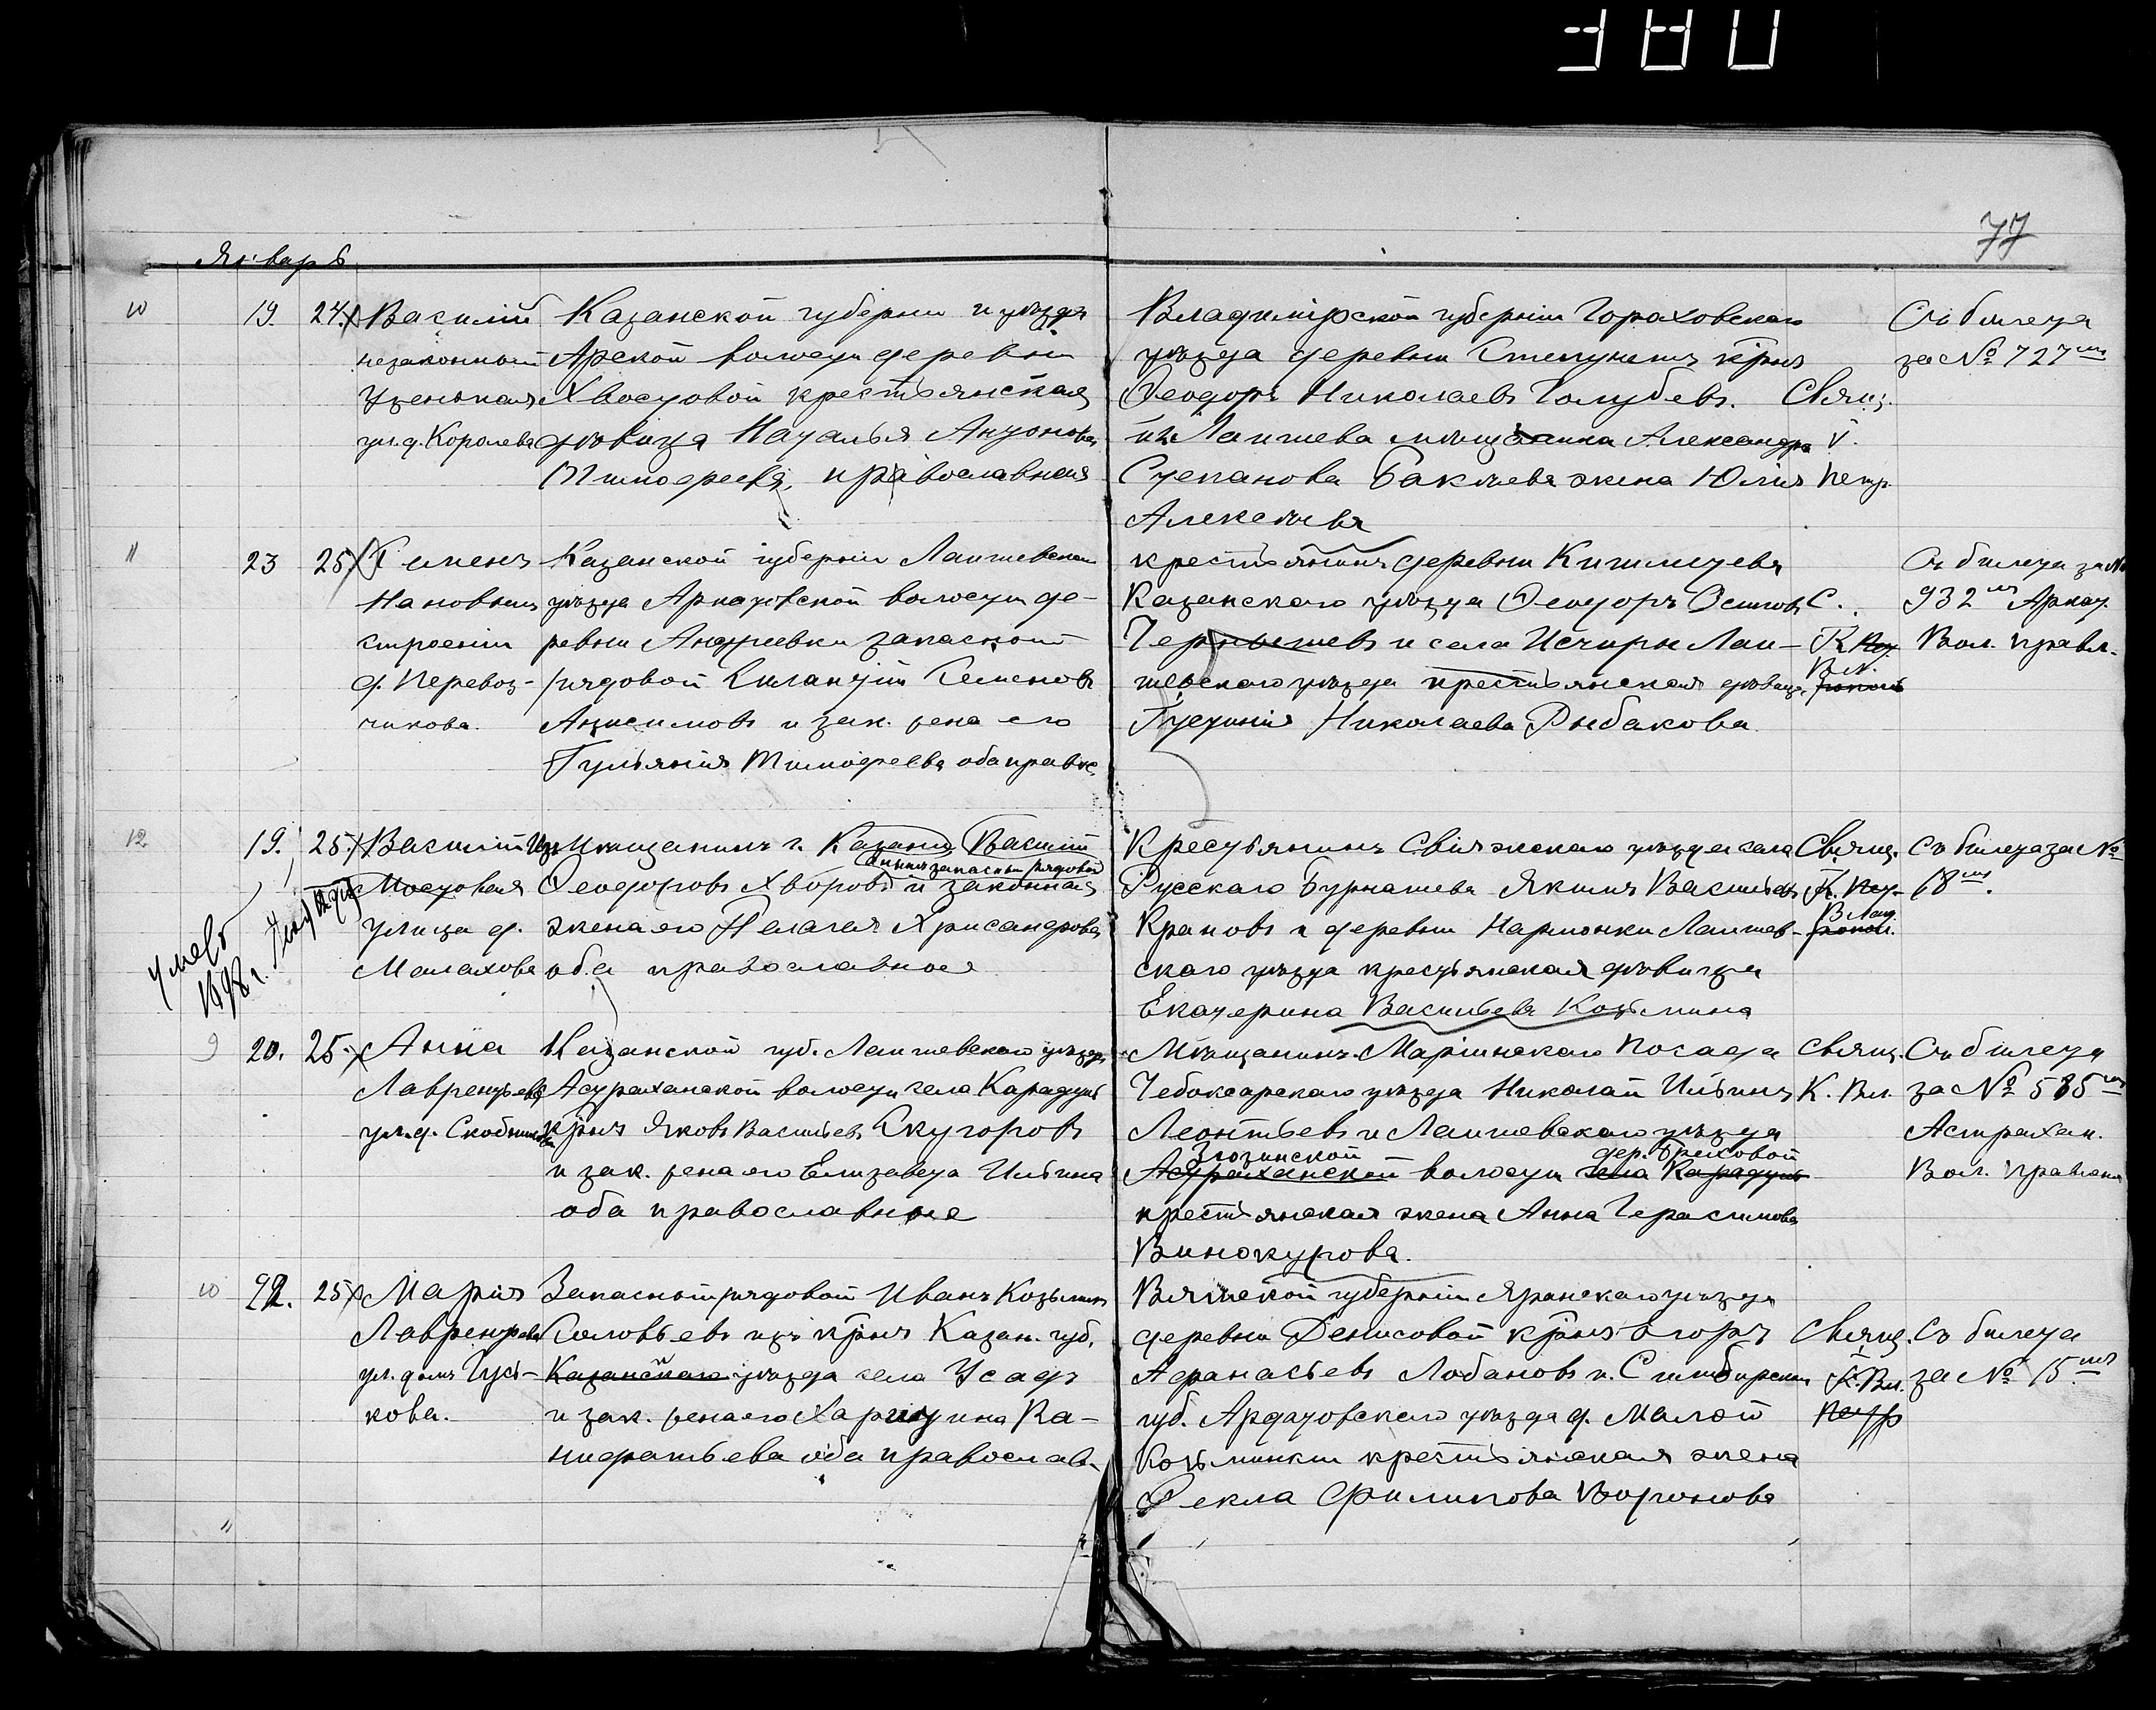 380
77
Январь
10 19. 24. Василій
незаконный
ул. д. Королева
Казанской губерніи и уѣзда
Арской волости деревни
Хвостовой крестьянская
дѣвица Наталья Антонова
Тимофеева, православная
Владимірской губерніи Гораховскаго
уѣзда деревни крнъ
Ѳеодоръ Николаевъ Голубевъ.
и г. Лаишева мѣщанина Александра
Степанова Баклаева жена Юлія
Алексѣева
Свящ.
Петр.
Съ билета
за № 727мъ
11 23 25. Семенъ
На новомъ
строеніи
д. Перевоз-
чикова.
Казанской губерніи Лаишевскаго
уѣзда волости де-
ревни Андреевки запасной
рядовой Семеновъ
Анисимовъ и зак. жена его
Гульянія Тимофеева оба правос.
крестьянинъ деревни
Казанскаго уѣзда Ѳеодоръ Осиповъ
Чернышевъ и села Лаи-
шевскаго уѣзда крестьянская дѣвица
Николаева Рыбакова
С.
К.
Вл.
Съ билета за №
932мъ
Вол. правл.
12 19. 25. Василій
Мостовая
улица д.
Малахова
Изъ мѣщанинъ г. Казани Василій
нынѣ запасный рядовой
Ѳеодоровъ Хворовъ и законная
жена его Пелагея Хрисанфова
оба православные
Крестьянинъ Свіяжскаго уѣзда села
Русскаго Бурнашева Якимъ Васильевъ
Краповъ и деревни Нармонки Лаишев-
скаго уѣзда крестьянская дѣвица
Екатерина Васильева Козьмина
Свящ.
К. Пет.
Влад.
Съ билета за №
68мъ.
умеръ
1898 г.
9 20. 25. Анна
Лаврентьева
ул. д.
Казанской губ. Лаишевскаго уѣзда
Астраханской волости села Карадули
крнъ Яковъ Васильевъ Скугоровъ
и зак. жена его Елизавета Ильина
оба православные
Мѣщанинъ Маріинскаго Посада
Чебоксарскаго уѣзда Николай Ильинъ
Леонтьевъ и Лаишевскаго уѣзда
Зюзинской дер. Греховой
Астраханской волости села Карадули
крестьянская жена Анна Герасимова
Винокурова.
Свящ.
К. Вл.
Съ билета
за № 585мъ
Астрахан.
Вол. правленія
10 22. 25. Марія
Лаврентьева
ул. домъ Гусь-
кова.
Запасный рядовой Иванъ Козьминъ
Соловьевъ изъ крнъ Казан. губ.
Казанскаго уѣзда села Усадъ
и зак. жена его Харитина Ка-
ндратьева оба православ.
Вятской губерніи Яранскаго уѣзда
деревни Денисовой крнъ Егоръ
Афанасьевъ Лобановъ и Симбирской
губ. Ардатовскаго уѣзда д. Малой
Козьминки крестьянская жена
Ѳекла Филипова Воронова
Свящ.
К. Вл.
Петр
Съ билета
за № 15мъ